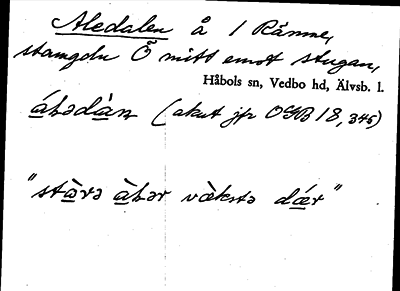 Aledalen å 1 Ränne,
stamgdn Ö mitt emot stugan,
Håbols sn, Vedbo hd, Älvsb. l.
álədàn (akut jfr OGB 18, 345)
"stærə àlər väkstə dǽr"